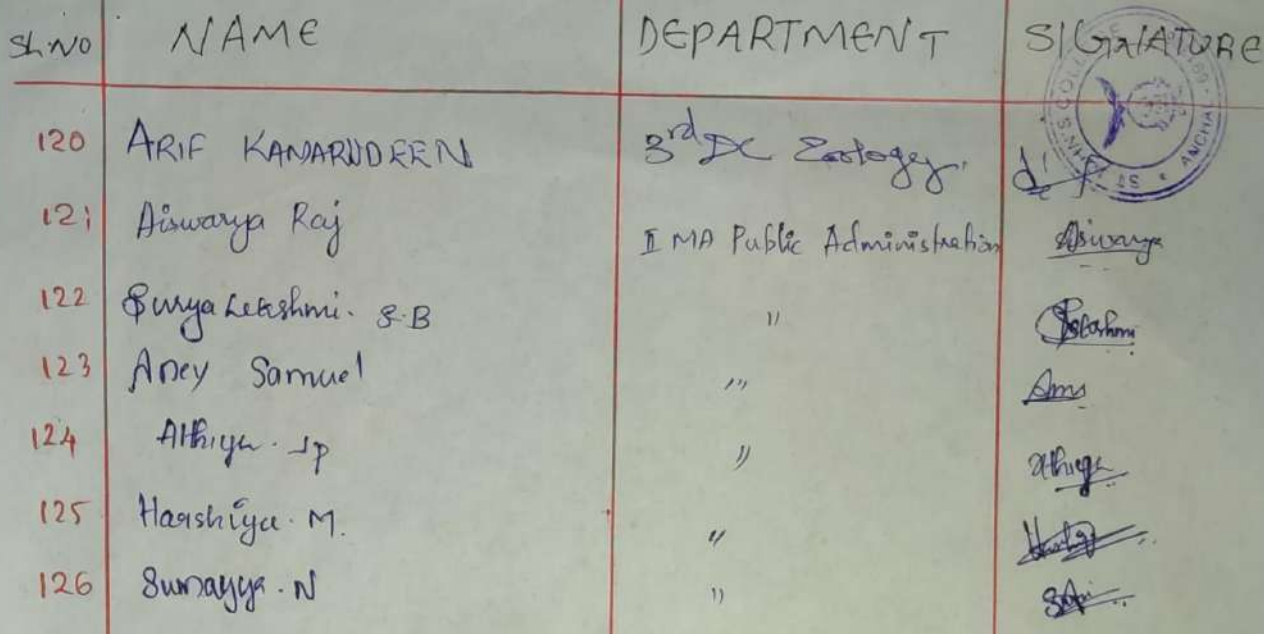 Sl.No NAME DEPARTMENT SIGNATURE
120 ARIF KAMARUDEEN 3rd DC Zoology.
121 Aiswarya Raj II MA Public Administration Aiswarya
122 Surya Lekshmi. S.B "
123 Aney Samuel "
124 Athiya. J P " Athiya
125 Harshiya. M. "
126 Sumayya. N "
ST JOHN'S COLLEGE ANCHAL